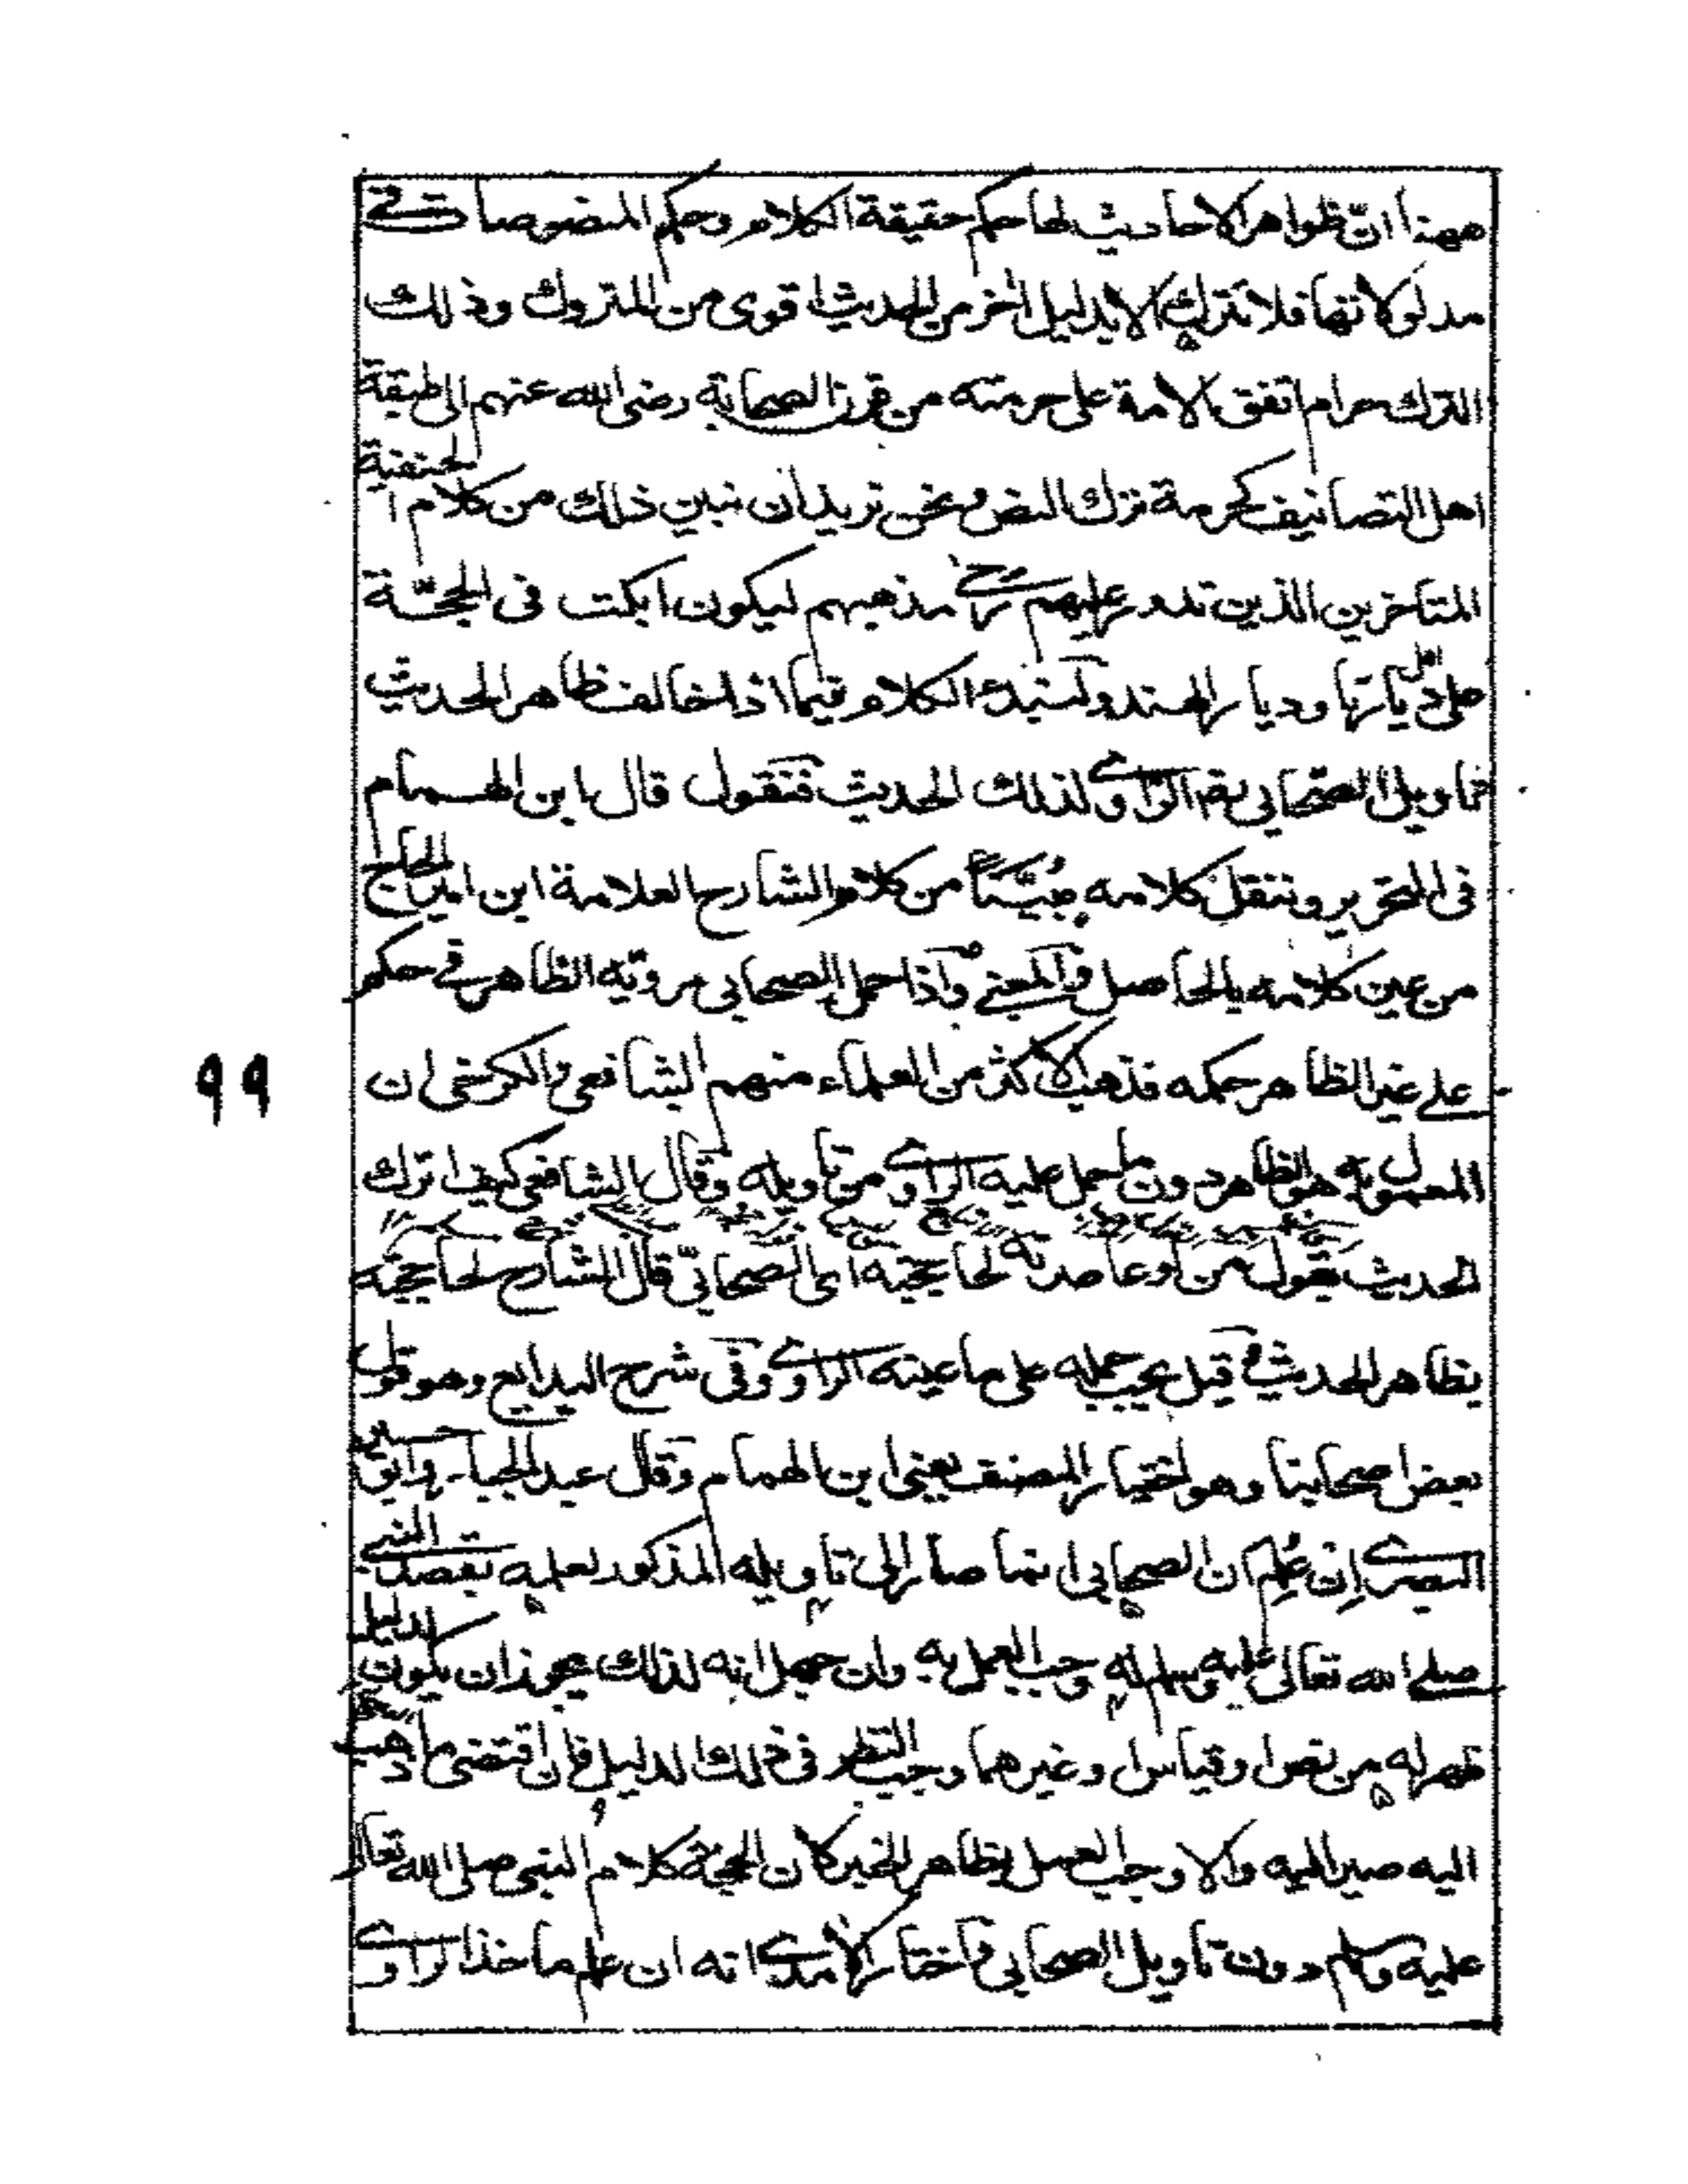 ههنا انّ ظواهر الاحاديث لها حكم حقيقة الكلام وحكم المنصوصات في
مدلولاتها فلا تترك الا بدليل اخر من الحديث اقوى من المتروك وذلك
الترك حرام اتفق الامة على حرمته من قرن الصحابة رضى الله عنهم الى طبقة
اهل التصانيف كحرمة ترك النص ونحن نريد ان نبين ذلك من كلام الحنفية
المتاخرين الذين تدور عليهم رحى مذهبهم ليكون ابكت فى الحجّة
على اهل ديارنا وديار الهند ولنبدء الكلام فيما اذا خالف ظاهر الحديث
تاويل الصحابى الراوى لذلك الحديث فنقول قال ابن الهمام
فى التحرير وننقل كلامه مبيّناً من كلام الشارح العلامة ابن امير الحاج
من عين كلامه بالحاصل والمعنى واذا حمل الصحابى مرويّه الظاهر فى حكم
على غير الظاهر حكمه فذهب الاكثر من العلماء منهم الشافعى والكرخى ان
المعمول به هو الظاهر دون ما حمل عليه الراوى من تاويله وقال الشافعى كيف اترك
الحديث بقول من لو عاصرته لحاججته اى الصحابىّ قال الشارح لحاججته
بظاهر الحديث وقيل يجب حمله على ما عينه الراوى وفى شرح البدايع وهو قول
بعض اصحابنا وهو اختيار المصنف يعنى ابن الهمام وقال عبد الجبار وابو الحسين
البصرى اِن عُلِم ان الصحابى انما صار الى تاويله المذكور لعلمه بقصد النبى
صلى الله تعالى عليه وسلم له وجب العمل به وان جهل انه لذلك يجوز ان يكون لدليل
ظهر له من نص او قياس او غيرهما وجب النظر فى ذلك الدليل فان اقتضى ما ذهب
اليه صير اليه والا وجب العمل بظاهر الخبر لان الحجة كلام النبى صلى الله تعالى
عليه وسلم دون تاويل الصحابى واختار الآمدى انه ان علم ماخذ الراوى
٩٩